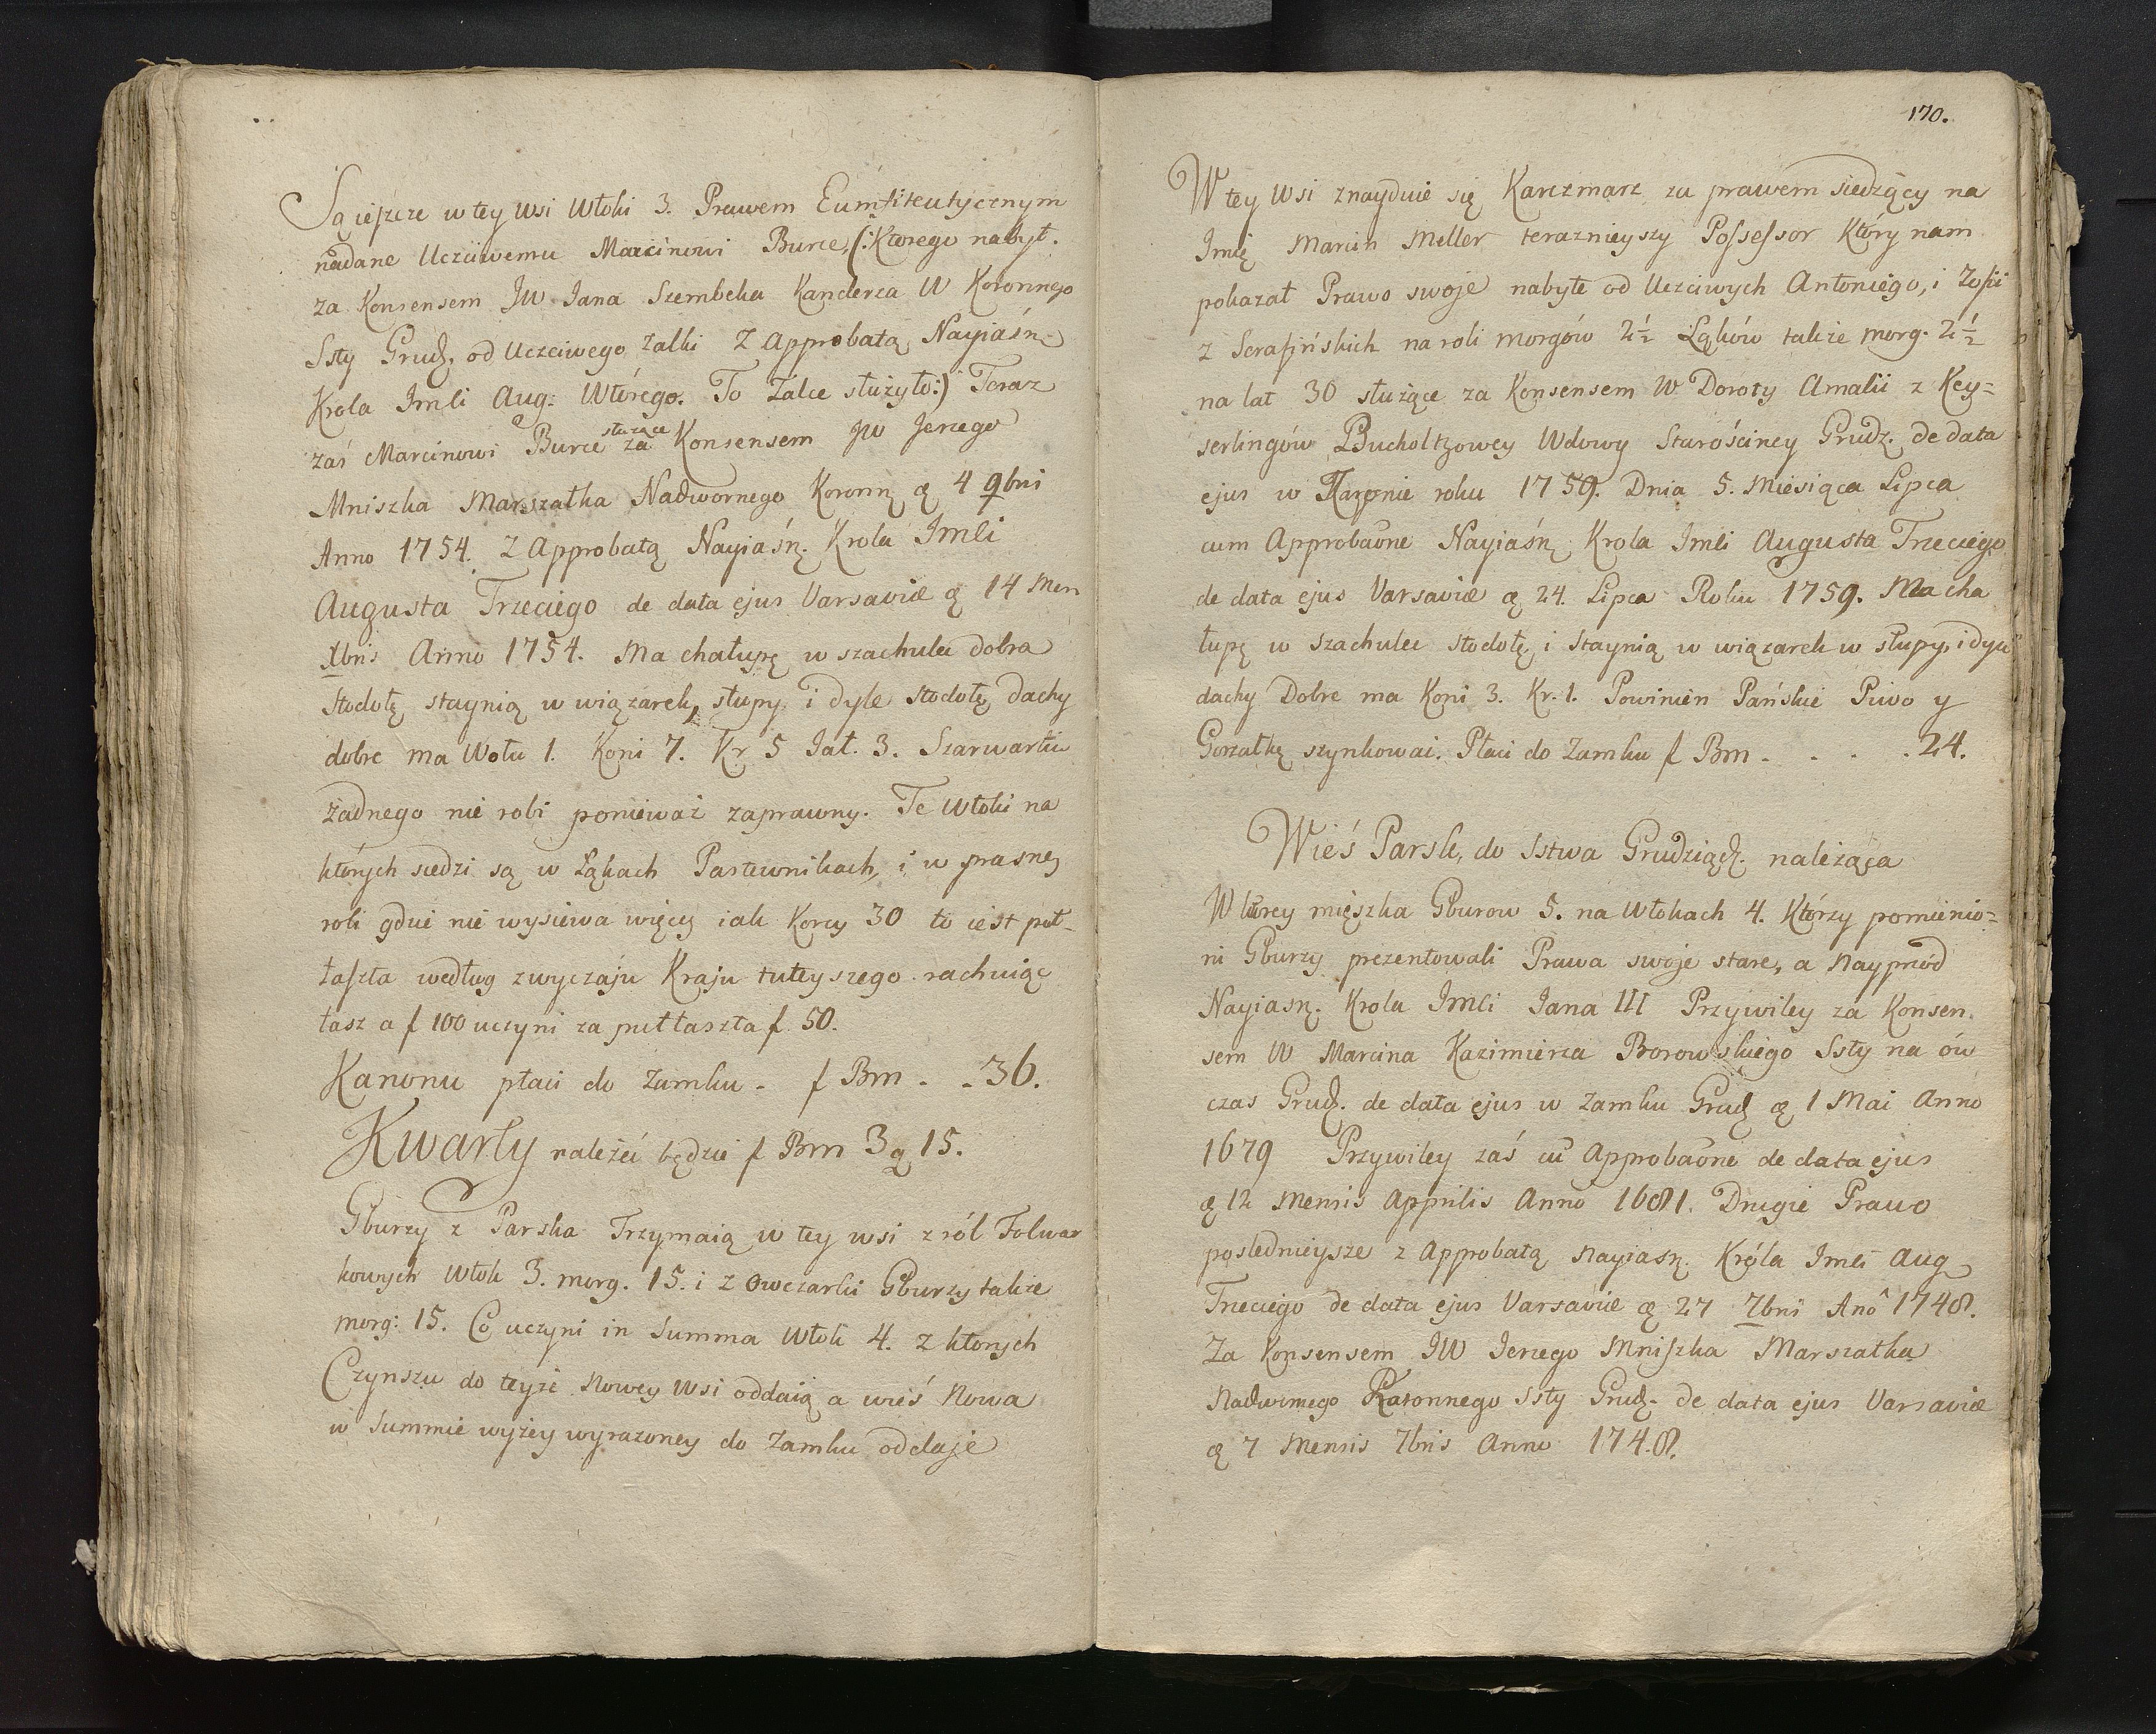 Są ieszcze w tey wsi Włoki 3. Prawem Eumfiteutycznym
nadane Uczciwemu Marcinowi Burce, (: Ktorego nabył.
za Konsensem JW. Jana Szembeka Kanclerza W Koronnego
Ssty Grudz. od Uczciwego Zalki Z Approbatą Nayiaśn.
Krola Imci Aug: Wtórego. To Zalce służyło:) Teraz
zaś Marcinowi Burce służące za Konsensem JW Jerzego
Mniszka Marszałka Nadwornego Koronn. q 4 9bri
Anno 1754. Z Approbatą Nayiaśn. Krola Imci
Augusta Trzeciego de data ejus Varsaviæ q 14 Men
Xbris Anno 1754. Ma chałupę w szachulec dobra
Stodołę staynią w wiązarek, słupy i dyle Stodołę dachy
dobre ma Wołu 1. Koni 7. Kr 5 Jał. 3. Szarwarku
żadnego nie robi ponieważ zaprawny. Te Włoki na
których siedzi są w Łąkach Pastewnikach, i w prasney
roli gdzie nie wysiewa więcey iak Korcy 30 to iest puł-
łaszta według zwyczaju Kraju tuteyszego rachuiąc
łasz a f 100 uczyni za puł łaszta f. 50.
Kanonu płaci do Zamku - f Bm - - 36.
Kwarty należeć będzie f Bm 3 g 15.
Gburzy z Parska Trzymaią w tey wsi z ról Folwar
kowych Włok 3. morg. 15. i z Owczarki Gburzy także
morg: 15. Co uczyni in Summa Włok 4. z ktorych
Czynszu do teyże Nowey Wsi oddaią a wieś Nowa
w Summie wyżey wyrazoney do Zamku oddaje
170.
W tey Wsi znayduie się Karczmarz za prawem siedzący na
Imię Marcin Meller teraznieyszy Possessor Który nam
pokazał Prawo swoje nabyte od Uczciwych Antoniego, i Zofii
z Serafińskich na roli morgów 2½ Łąków także morg. 2½
na lat 30 służące za Konsensem W Doroty Amalii z Key=
serlingów Bucholtzowey Wdowy Starościney Grudz. de data
ejus w roku 1759. Dnia 5. Miesiąca Lipca
cum Approbaōne Nayiaśn. Krola Imci Augusta Trzeciego
de data ejus Varsaviæ q 24. Lipca Roku 1759. Ma cha
łupę w szachulec stodołę i staynią w wiązarek w słupy, i dyle
dachy Dobre ma Koni 3. Kr. 1. Powinien Pańskie Piwo y
Gorzałkę szynkowac. Płaci do Zamku f Bm - - - . 24.
Wieś Parsk, do Sstwa Grudziądz. należąca
W ktorey mięszka Gburow 5. na Włokach 4. Którzy pomienio=
ni Gburzy prezentowali Prawa swoje stare, a Nayprzód
Nayiasn. Krola Imci Jana III Przywiley za Konsen.
sem W Marcina Kazimierza Borowskiego Ssty na ów
czas Grudz. de data ejus w Zamku Grudz q 1 Mai Anno
1679 Przywiley zaś cū Approbaōne de data ejus
q 12 Mensis Apprilis Anno 1681. Drugie Prawo
poslednieysze z Approbatą Nayiasn. Króla Imci Aug
Trzeciego de data ejus Varsaviæ q 27 7bri Anō 1748.
Za Konsensem JW Jerzego Mniszka Marszałka
Nadwornego Koronnego Ssty Grudz. de data ejus Varsaviæ
q 7 Mensis 7bris Anno 1748.